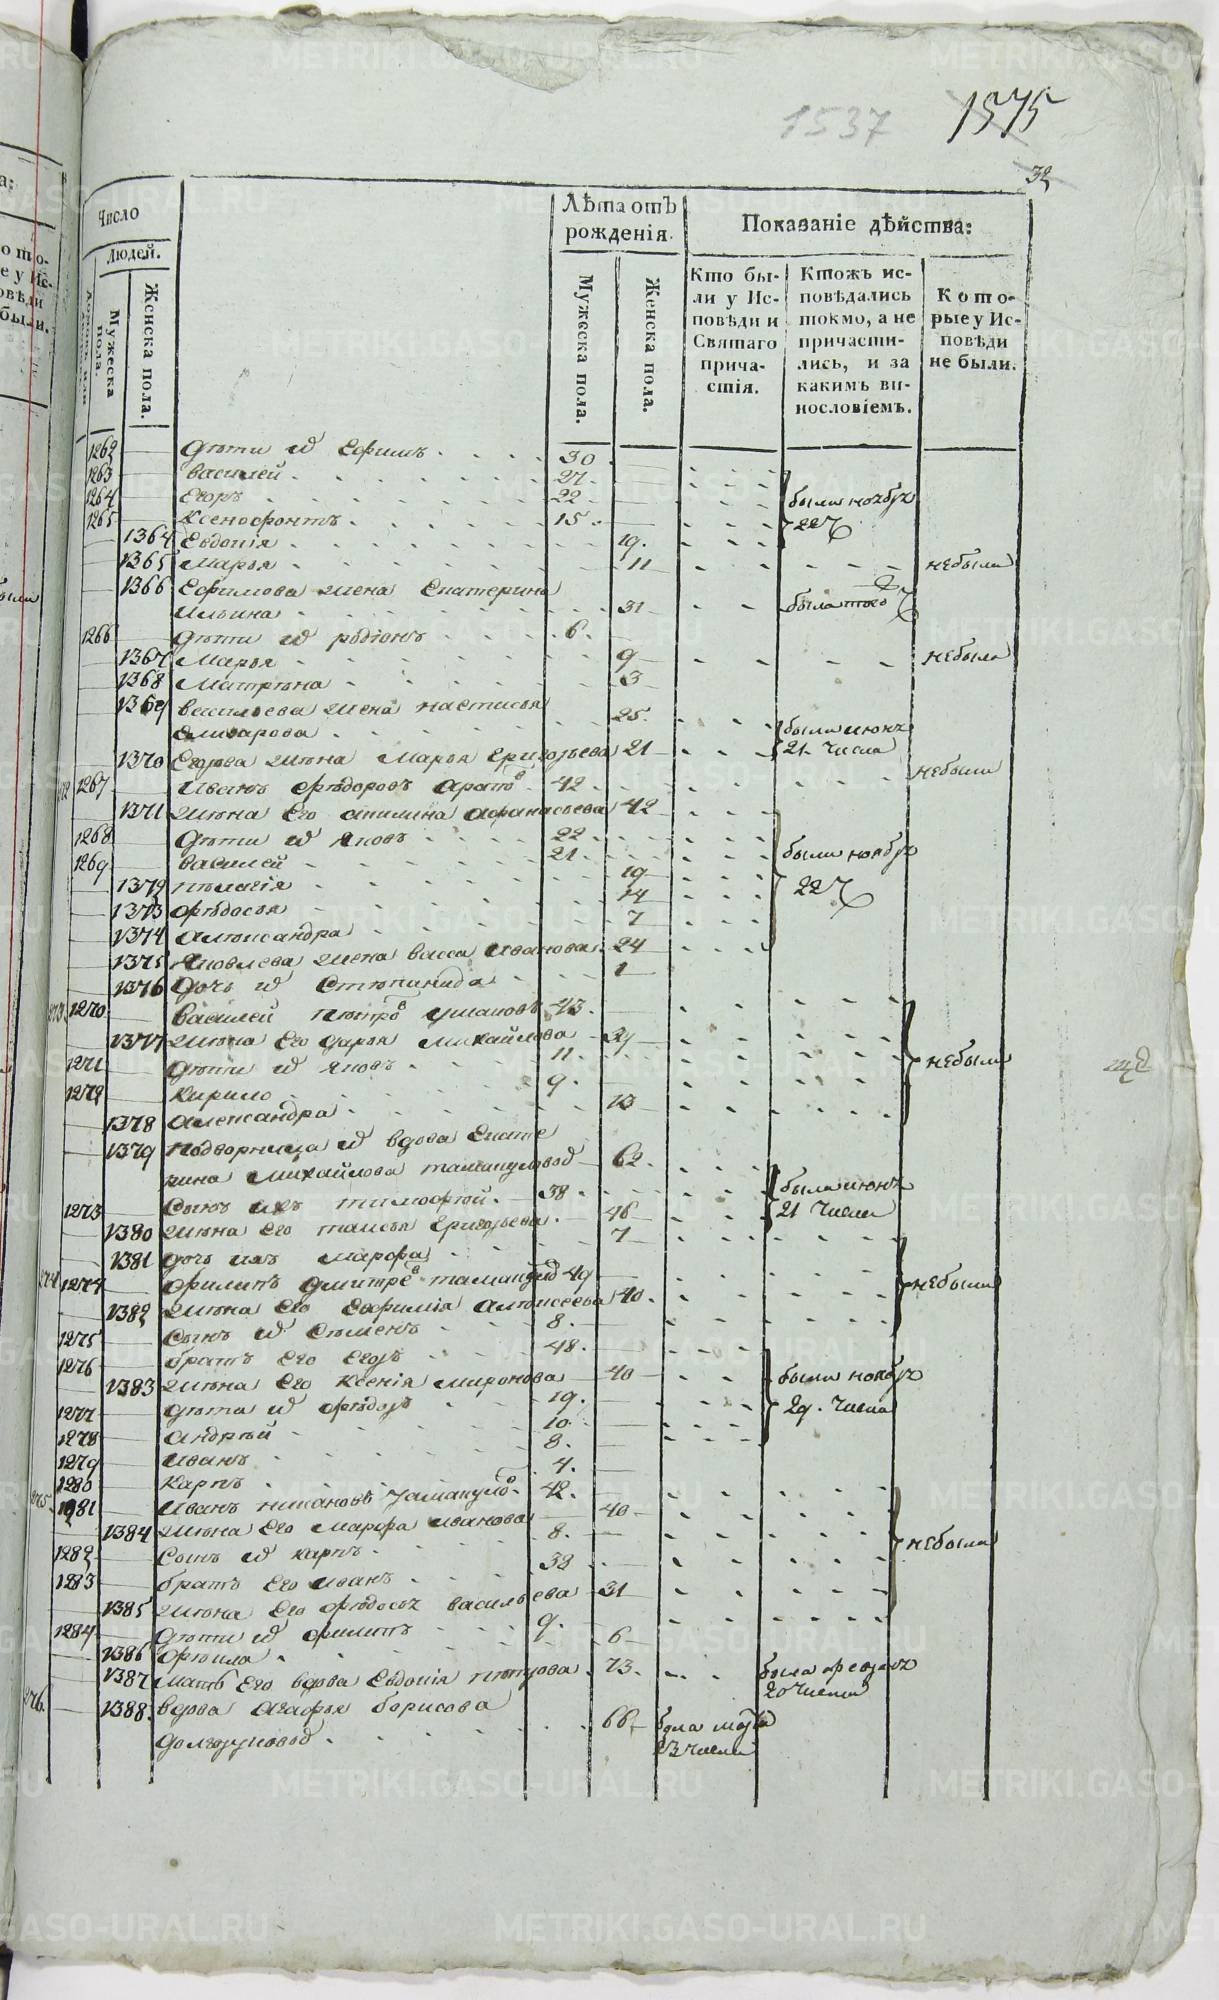 1537 1575
32
Число
Людей.
Мужеска пола.
Женска пола.
Лѣта отъ рожденія.
Мужеска пола.
Женска пола.
Показаніе дѣйства:
Кто были у Исповѣди и Святаго причастія.
Ктожъ исповѣдались токмо, а не причастились, и за какимъ винословіемъ.
Которые у Исповѣди не были.
1262 Дѣти ей Ефимъ 30
1263 Василей 27
1264 Егоръ 22 были ноября
1265 Ксенофонтъ 15 22 ч
1364 Евдокія 19
1365 Марья 11 небыли
1366 Ефимова жена Екатерина
Ильина 31 была того
1266 Дѣти ей Родіонъ 6
1367 Марья 9 небыли
1368 Матрена 3
1369 Васильева жена Настасья
Елизарова 25 были июня
1370 Егорова жена Марья Григорьева 21 21 числа
1267 Иванъ Федоровъ 42 небыли
1371 Жена его Акилина Афанасьева 42
1268 Дѣти ей Яковъ 22
1269 Василей 21 были ноября
1372 Пелагія 19
1373 Федосья 14 22 ч
1374 Александра 7
1375 Яковлева жена Васса Иванова 24
1376 Дочь ей Степанида 1
1270 Василей Петро 43
1377 Жена его Дарья Михайлова 39
1271 Дѣти ей Яковъ 11 небыли
1272 Кирило 9
1378 Александра 13
1379 Подворница ей вдова Екате
рина Михайлова 62
1273 Сынъ ихъ Тимофей 38 были июня
1380 Жена его Таисья Григорьева 46 21 числа
1381 Дочь ихъ Марфа 7
274 1274 Филипъ Дмитре 49
1382 Жена его Евфимія Алексеева 40 небыли
1275 Сынъ ей Семенъ 8
1276 Братъ его Егоръ 48
1383 Жена его Ксенія Миронова 40 были ноября
1277 Дѣти ей Федоръ 19 29. числа
1278 Андрей 10
1279 Иванъ 8
1280 Карпъ 4
275 1281 Иванъ 42
1384 Жена его Марфа Иванова 40
1282 Сынъ ей Карпъ 8 небыли
1283 Братъ его Иванъ 38
1385 Жена его Федосья Васильева 31
1284 Дѣти ей Филипъ 9
1386 Фекла 6
1387 Мать его вдова Евдокія Петрова 73 была февраля
20 числа
276 1388 Вдова Агафья Борисова
66 была марта
13 числа
METRIKI.GASO-URAL.RU